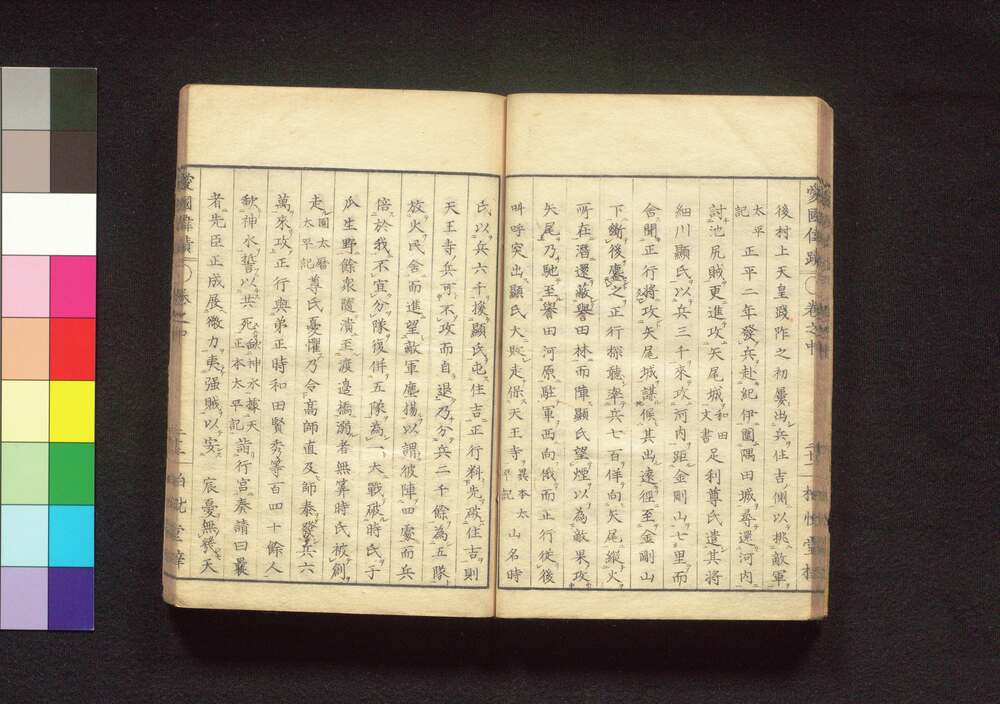 後村上天皇踐阼之初屢出兵住吉側以挑敵軍
太平記 正平二年發兵赴紀伊圍隅田城尋還河内
討池尻賊更進攻矢尾城 和田文書 足利尊氏遣其將
細川顯氏以兵三千來攻河内距金剛山七里而
舍聞正行將攻矢尾城謀候其出遠徑至金剛山
下斷後塵之正行探聽率兵七百佯向矢尾縱火
所在潛還蔽譽田林而陣顯氏望煙以為敵果攻
矢尾乃馳至譽田河原駐軍西向俄而正行從後
叫呼突出顯氏大敗走保天王寺 異本太平記 山名時
氏以兵六千援顯氏屯住吉正行料先破住吉則
天王寺兵可不攻而自退乃分兵二千餘為五隊
放火民舍而進望敵軍塵揚以謂彼陣四處而兵
倍於我不宜分隊後併五隊為一大戰破時氏于
瓜生野餘衆隨潰至渡邊橋溺者無算時氏被創
走 園太曆太平記 尊氏憂懼乃令高師直及師泰發兵六
萬來攻正行與弟正時和田賢秀等百四十餘人
歃神水誓以共死 歃神水據天正本太平記 詣行宮奏請曰曩
者先臣正成展微力夷强賊以安 宸憂無幾天
愛國偉蹟 卷之中